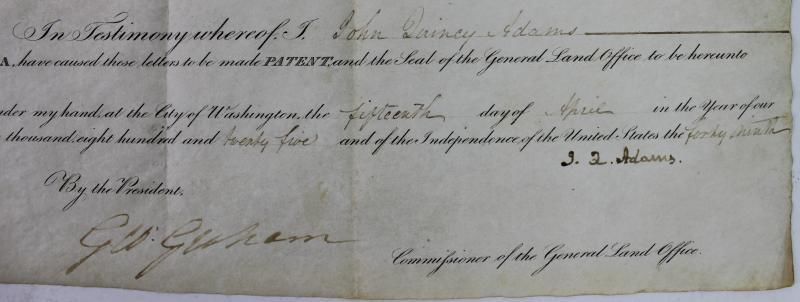 In Testimony whereof, I, John Quincy Adams
A, have caused these letters to be made PATENT, and the Seal of the General Land Office to be hereunto
der my hand, at the City of Washington, the fifteenth day of April in the Year of our
thousand, eight hundred and twenty five and of the Independence, of the United States the forty ninth
J. Q. Adams.
By, the President.
Geo. Graham
Commissioner of the General Land Office.